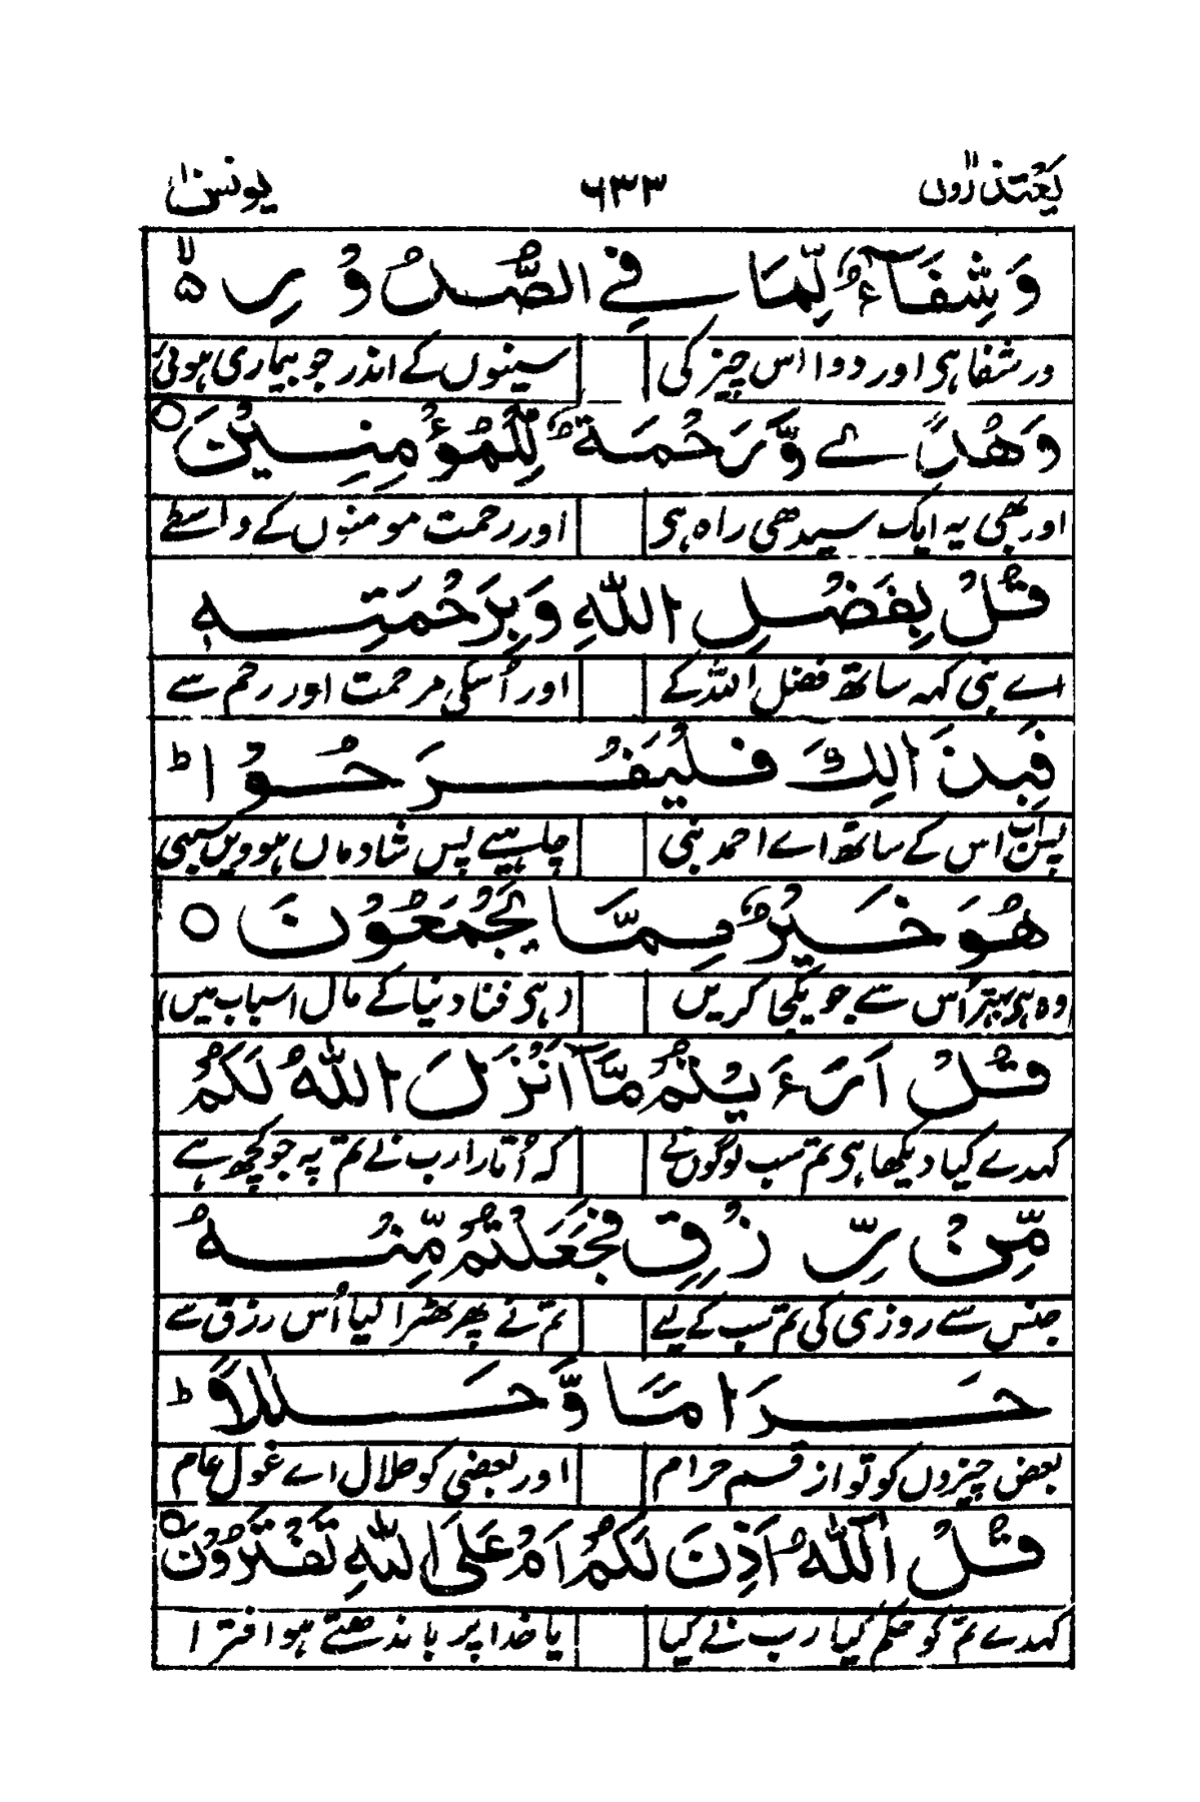 یعتذرون ۱۱ ۶۳۳ یونس ۱۰
وَشِفَآءٌ لِّمَا فِي الصُّدُوْرِ ۵ۙ
ور شفا ہی اور دوا اس چیز کی سینوں کے اندر جو بیماری ہوئی
وَهُدًے وَّرَحْمَةٌ لِّلْمُؤْمِنِيْنَ ○
اور بھی یہ ایک سیدھی راہ ہی اور رحمت مومنوں کے واسطے
قُلْ بِفَضْلِ اللّٰهِ وَبِرَحْمَتِهٖ
اے نبی کہہ ساتھ فضل اللہ کے اور اُسکی مرحمت اور رحم سے
فَبِذٰلِكَ فَلْيَفْرَحُوْا ؕ
پس اب اس کے ساتھ اے احمد نبی چاہیے پس شادماں ہوویں سبھی
هُوَ خَيْرٌ مِّمَّا يَجْمَعُوْنَ ○
وہ ہی بہتر اُس سے جو یکجا کریں (ہی فنا دنیا کے مال اسباب میں)
قُلْ اَرَءَيْتُمْ مَّآ اَنْزَلَ اللّٰهُ لَكُمْ
کہدے کیا دیکھا ہی تم سب لوگوں نے کہ اُتارا رب نے تم پہ جو کچھ ہے
مِّنْ رِّزْقٍ فَجَعَلْتُمْ مِّنْهُ
جنس سے روزی کی تم سب کے لیے تم نے پھر ٹھہرا لیا اُس رزق سے
حَرَامًا وَّحَلٰلًا ؕ
بعض چیزوں کو تو از قسم حرام اور بعضی کو حلال اے غول عام
قُلْ آٰللّٰهُ اَذِنَ لَكُمْ اَمْ عَلَى اللّٰهِ تَفْتَرُوْنَ ○
کہدے تم کو حکم کیا رب نے کیا یا خدا پر باندھتے ہو افترا